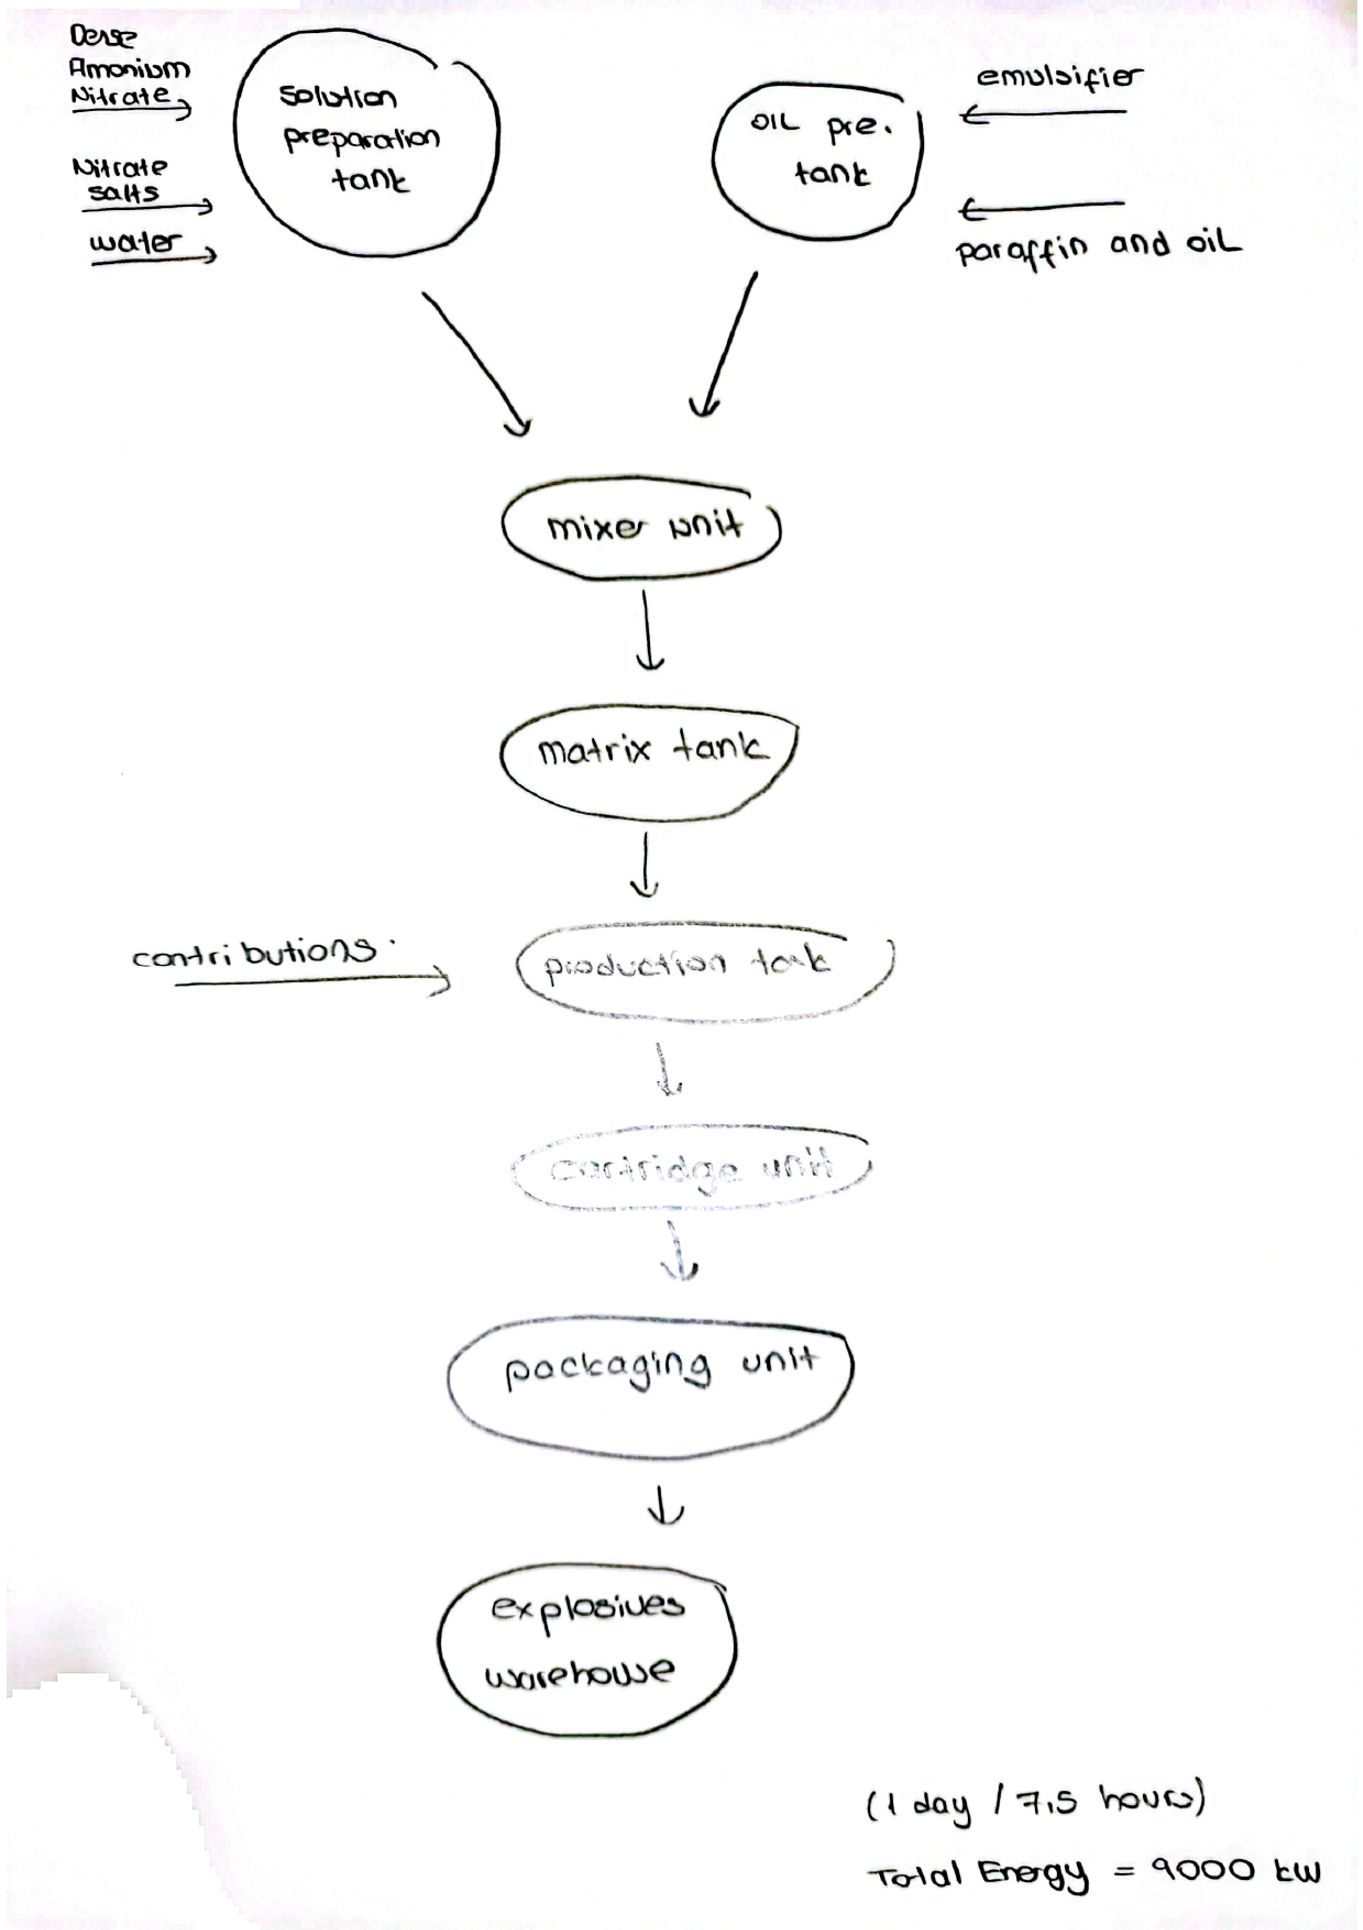 Dense
Amonium
Nitrate
Nitrate
salts
water
solution
preparation
tank
OIL pre.
tank
emulsifier
paraffin and oil
mixer unit
matrix tank
contributions.
production tank
cartridge unit
packaging unit
explosives
warehouse
(1 day / 7,5 hours)
Total Energy = 9000 kW